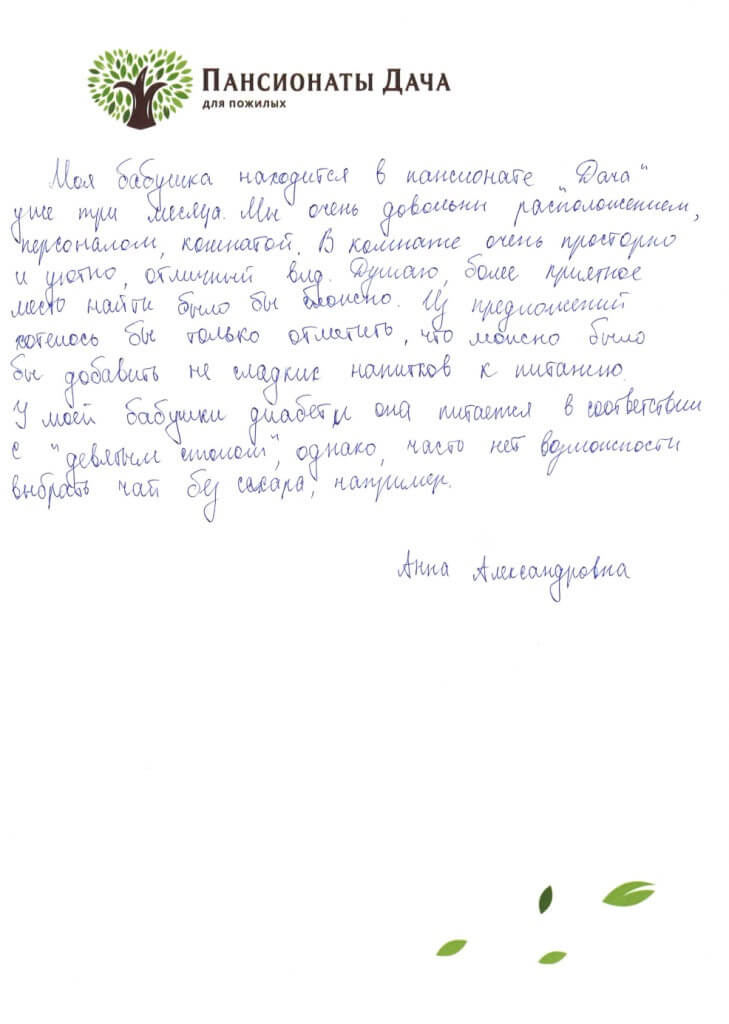 ПАНСИОНАТЫ ДАЧА
ДЛЯ ПОЖИЛЫХ
Моя бабушка находится в пансионате "Дача"
уже три месяца. Мы очень довольны расположением,
персоналом, комнатой. В комнате очень просторно
и уютно, отличный вид. Думаю, более приятное
место найти было бы сложно. Из предложений
хотелось бы только отметить, что можно было
бы добавить не сладких напитков к питанию.
У моей бабушки диабет и она питается в соответствии
с "девятым столом", однако, часто нет возможности
выбрать чай без сахара, например.
Анна Александровна